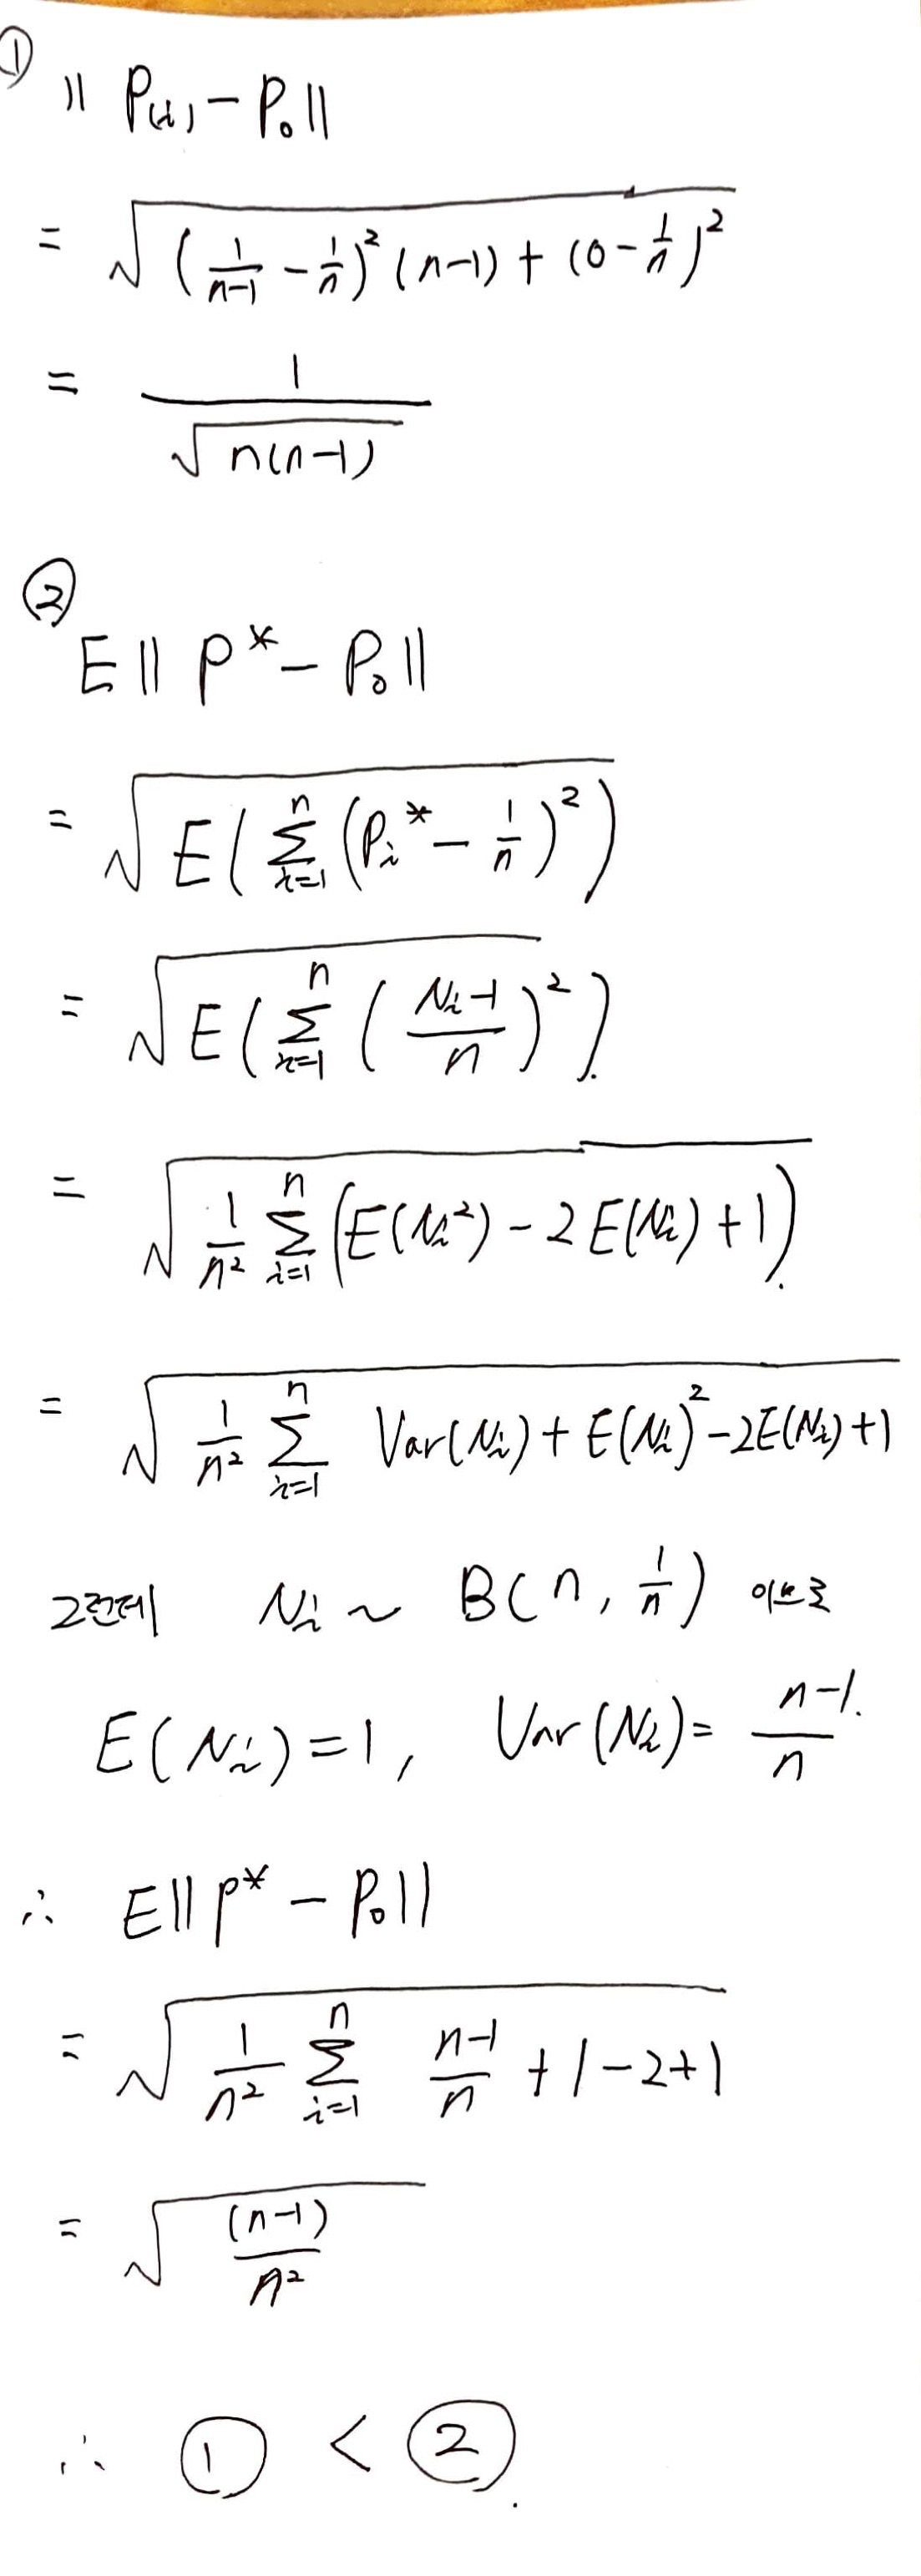 ①
|| P(i) - P₀ ||
= √( (1/(n-1) - 1/n)² (n-1) + (0 - 1/n)² )
= 1/√(n(n-1))
②
E || P* - P₀ ||
= √( E( Σ_{i=1}^{n} (P_i* - 1/n)² ) )
= √( E( Σ_{i=1}^{n} ( (N_i - 1)/n )² ) )
= √( 1/n² Σ_{i=1}^{n} ( E(N_i²) - 2E(N_i) + 1 ) )
= √( 1/n² Σ_{i=1}^{n} Var(N_i) + E(N_i)² - 2E(N_i) + 1 )
그런데 N_i ~ B(n, 1/n) 이므로
E(N_i) = 1, Var(N_i) = (n-1)/n
∴ E || P* - P₀ ||
= √( 1/n² Σ_{i=1}^{n} (n-1)/n + 1 - 2 + 1 )
= √( (n-1)/n² )
∴ ① < ②.